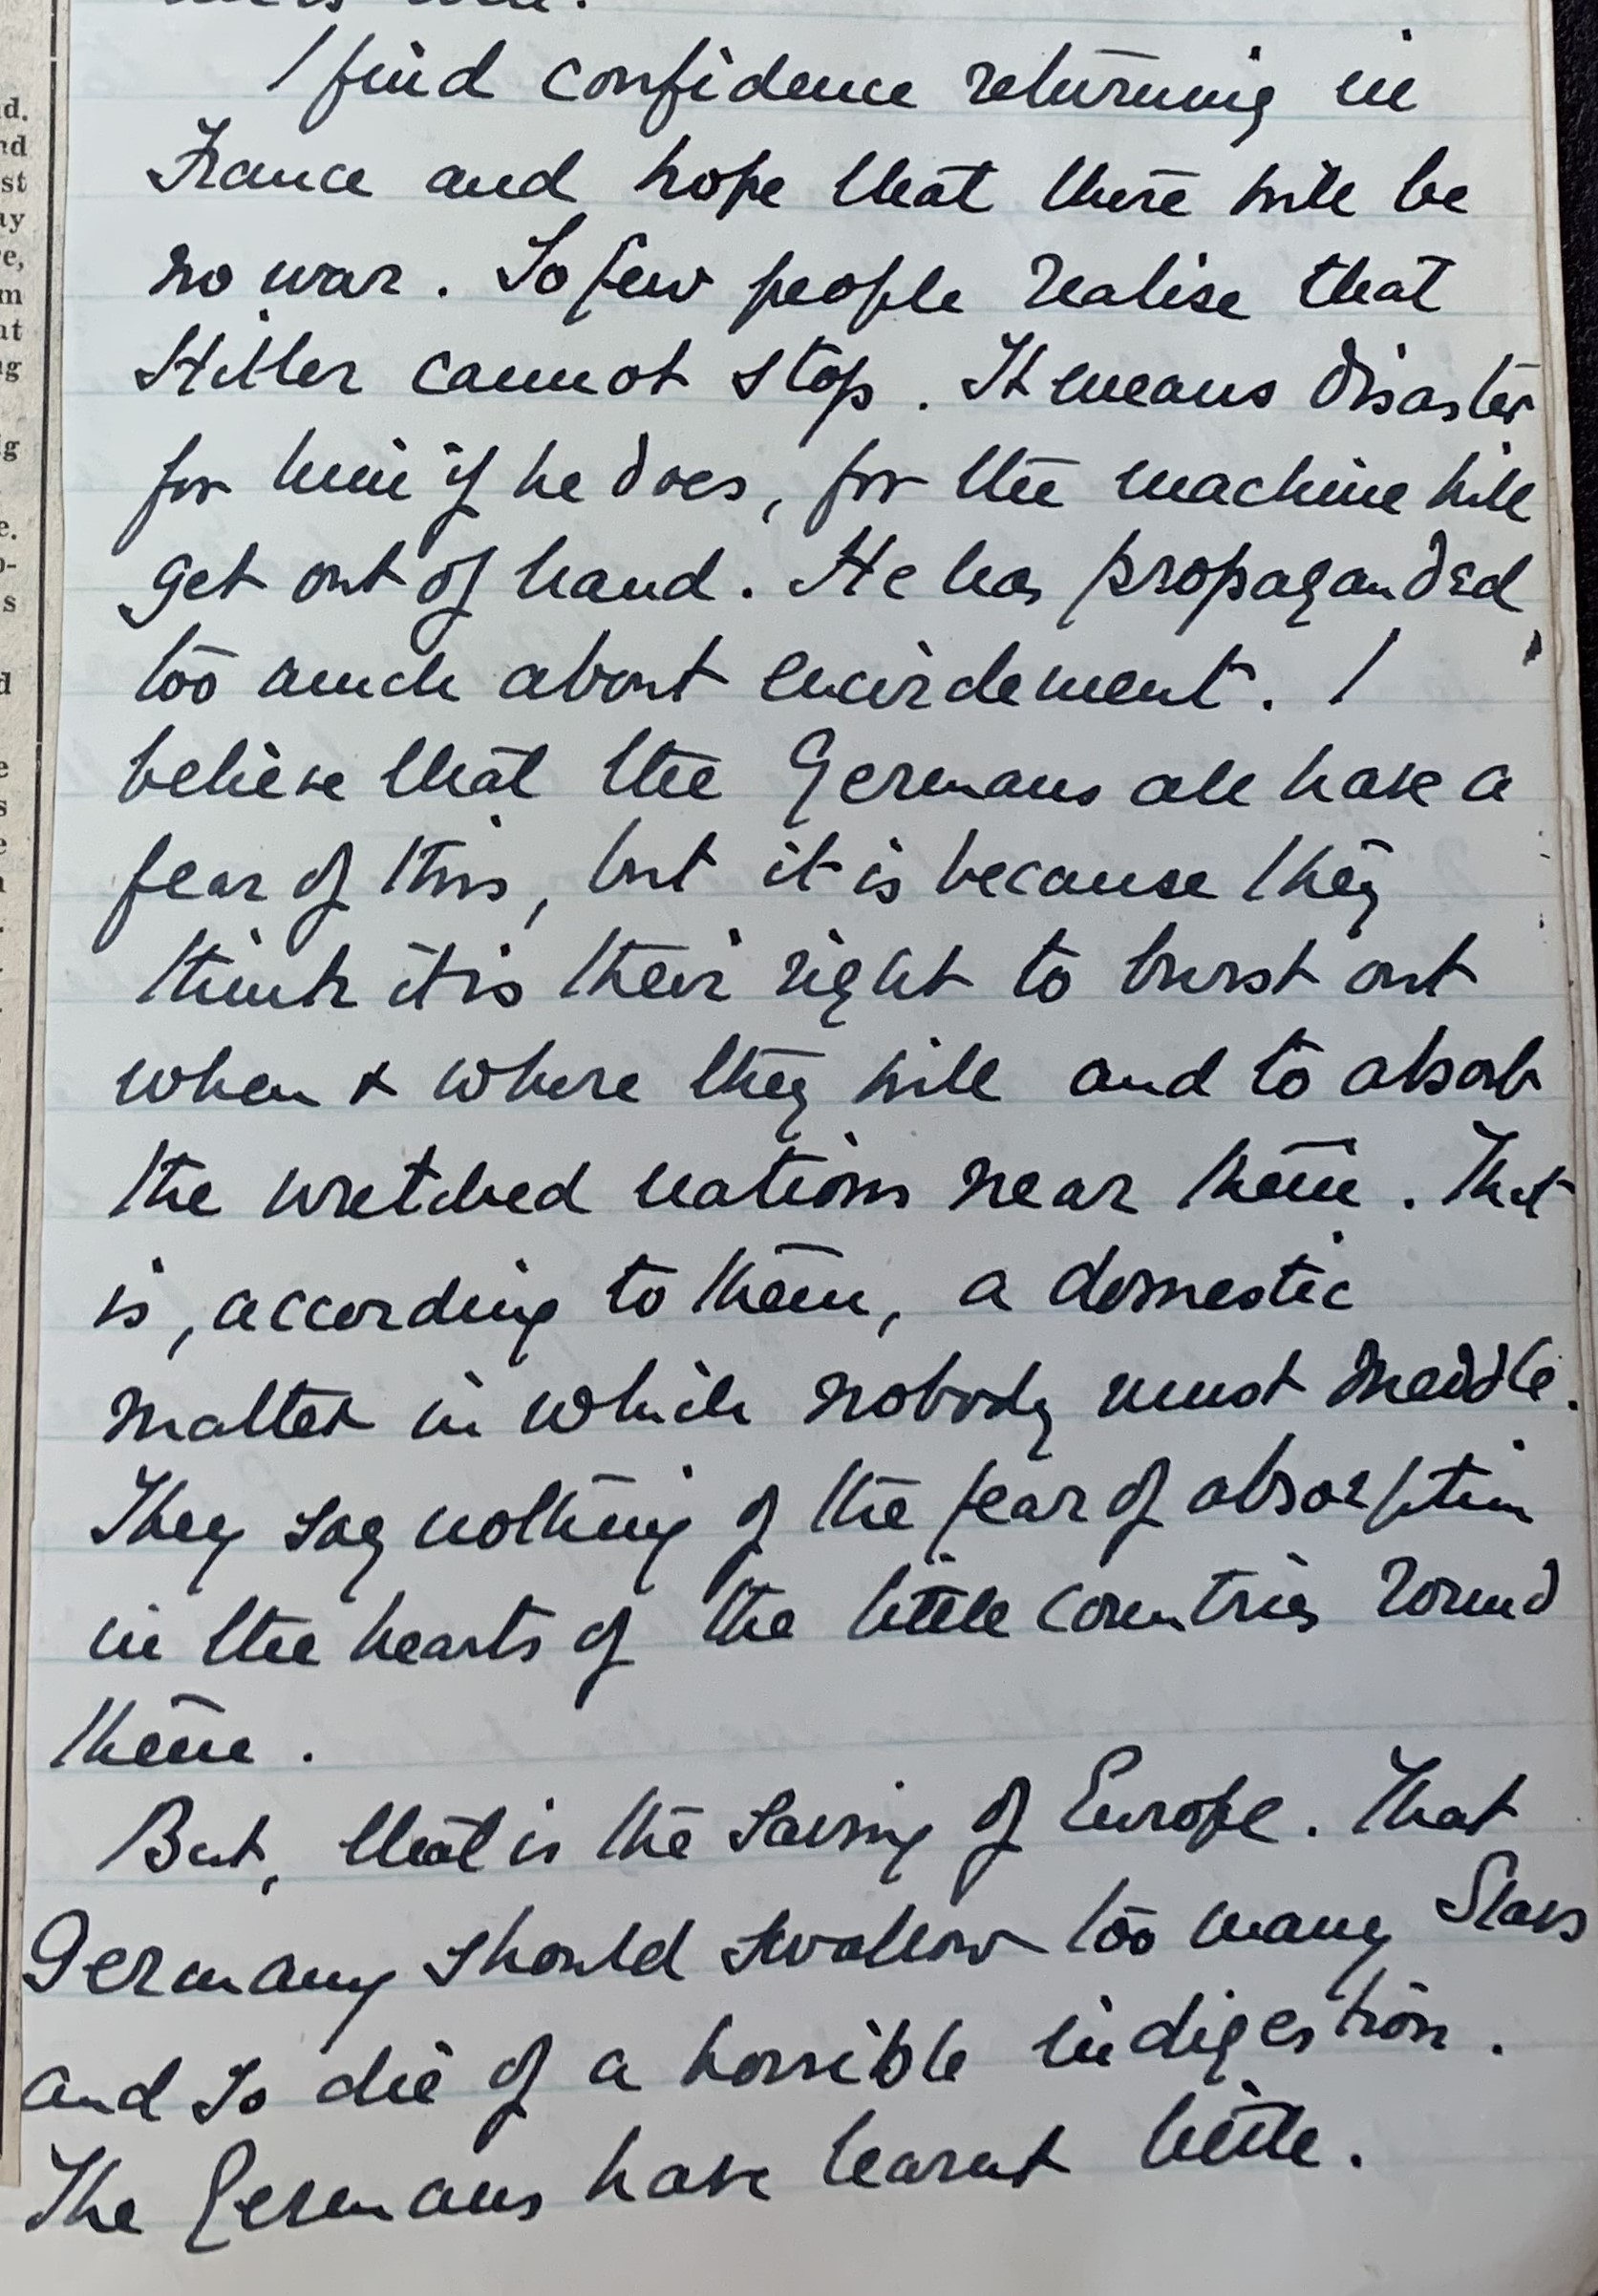 I find confidence returning in
France and hope that there will be
no war. So few people realise that
Hitler cannot stop. It means disaster
for him if he does, for the machine will
get out of hand. He has propaganded
too much about encirclement. I
believe that the Germans all have a
fear of this, but it is because they
think it is their right to burst out
when & where they will and to absorb
the wretched nations near them. That
is, according to them, a domestic
matter in which nobody must meddle.
They say nothing of the fear of absorption
in the hearts of the little countries round
them.
But, that is the saving of Europe. That
Germany should swallow too many Slavs
and so die of a horrible indigestion.
The Germans have learnt little.